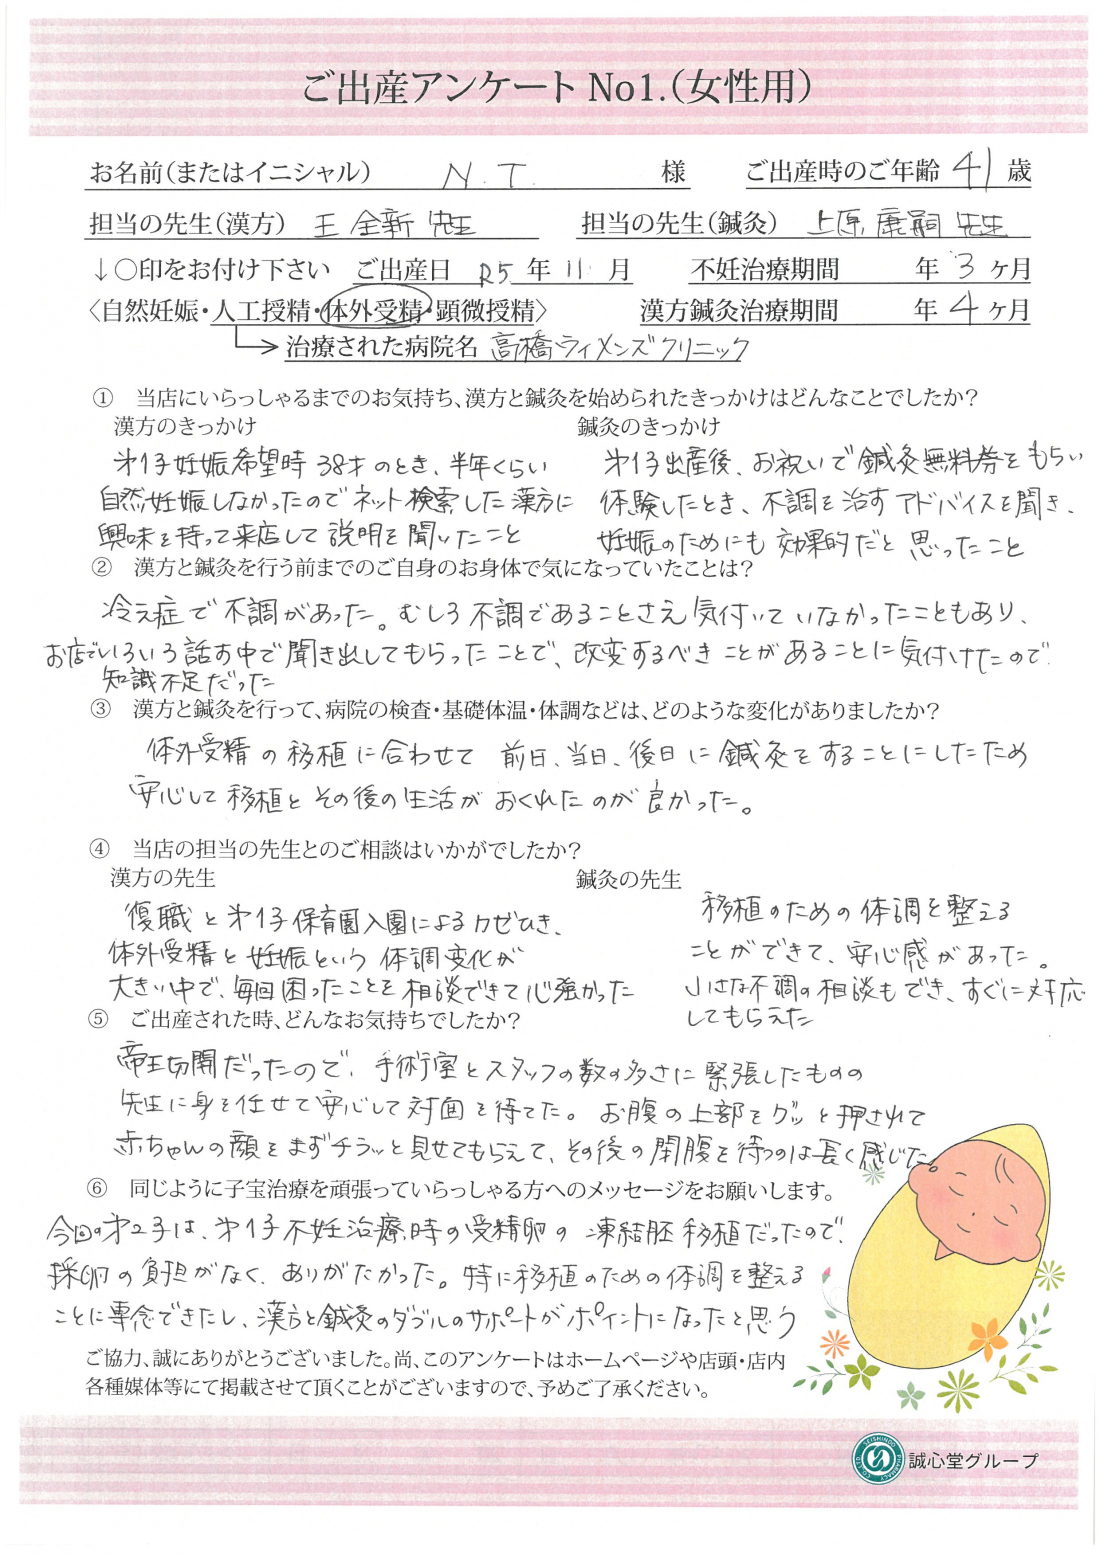 ご出産アンケート No1.(女性用)
お名前(またはイニシャル) N.T. 様 ご出産時のご年齢 41 歳
担当の先生(漢方) 王 全新 先生 担当の先生(鍼灸) 上原 康嗣 先生
↓○印をお付け下さい ご出産日 R5 年 11 月 不妊治療期間 年 3 ヶ月
〈自然妊娠・人工授精・体外受精・顕微授精〉 漢方鍼灸治療期間 年 4 ヶ月
治療された病院名 高橋ウイメンズクリニック
① 当店にいらっしゃるまでのお気持ち、漢方と鍼灸を始められたきっかけはどんなことでしたか?
漢方のきっかけ
第1子妊娠希望時 38才のとき、半年くらい
自然妊娠しなかったのでネット検索した漢方に
興味を持って来店して説明を聞いたこと
鍼灸のきっかけ
第1子出産後、お祝いで鍼灸無料券をもらい
体験したとき、不調を治すアドバイスを聞き、
妊娠のためにも効果的だと思ったこと
② 漢方と鍼灸を行う前までのご自身のお身体で気になっていたことは?
冷え症で不調があった。むしろ不調であることさえ気付いていなかったこともあり、
お店でいろいろ話す中で聞き出してもらったことで、改変するべきことがあることに気付けたので
知識不足だった
③ 漢方と鍼灸を行って、病院の検査・基礎体温・体調などは、どのような変化がありましたか?
体外受精の移植に合わせて 前日、当日、後日に鍼灸をすることにしたため
安心して移植とその後の生活がおくれたのが良かった。
④ 当店の担当の先生とのご相談はいかがでしたか?
漢方の先生
復職と第1子保育園入園によるカゼひき、
体外受精と妊娠という体調変化が
大きい中で、毎回困ったことを相談できて心強かった
鍼灸の先生
移植のための体調を整える
ことができて、安心感があった。
小さな不調の相談もでき、すぐに対応
してもらえた
⑤ ご出産された時、どんなお気持ちでしたか?
帝王切開だったので、手術室とスタッフの数の多さに緊張したものの
先生に身を任せて安心して対面を待てた。お腹の上部をグッと押されて
赤ちゃんの顔をまずチラッと見せてもらえて、その後の閉腹を待つのは長く感じた
⑥ 同じように子宝治療を頑張っていらっしゃる方へのメッセージをお願いします。
今回の第2子は、第1子不妊治療時の受精卵の凍結胚移植だったので、
採卵の負担がなく、ありがたかった。特に移植のための体調を整える
ことに専念できたし、漢方と鍼灸のダブルのサポートがポイントになったと思う
ご協力、誠にありがとうございました。尚、このアンケートはホームページや店頭・店内
各種媒体等にて掲載させて頂くことがございますので、予めご了承ください。
誠心堂グループ